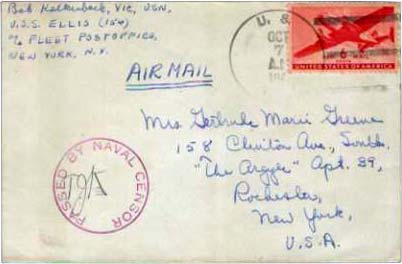 Bob Kalkenback, VIC, USN,
U.S.S. ELLIS (154)
℅ FLEET POSTOFFICE,
NEW YORK, N.Y.
U. S.
OCT
7
6¢
UNITED STATES OF AMERICA
AIR MAIL
Mrs Gertrude Marie Greene
158 Clinton Ave., South.
"The Argyle" Apt. 29,
Rochester,
New York,
U.S.A.
PASSED BY NAVAL CENSOR